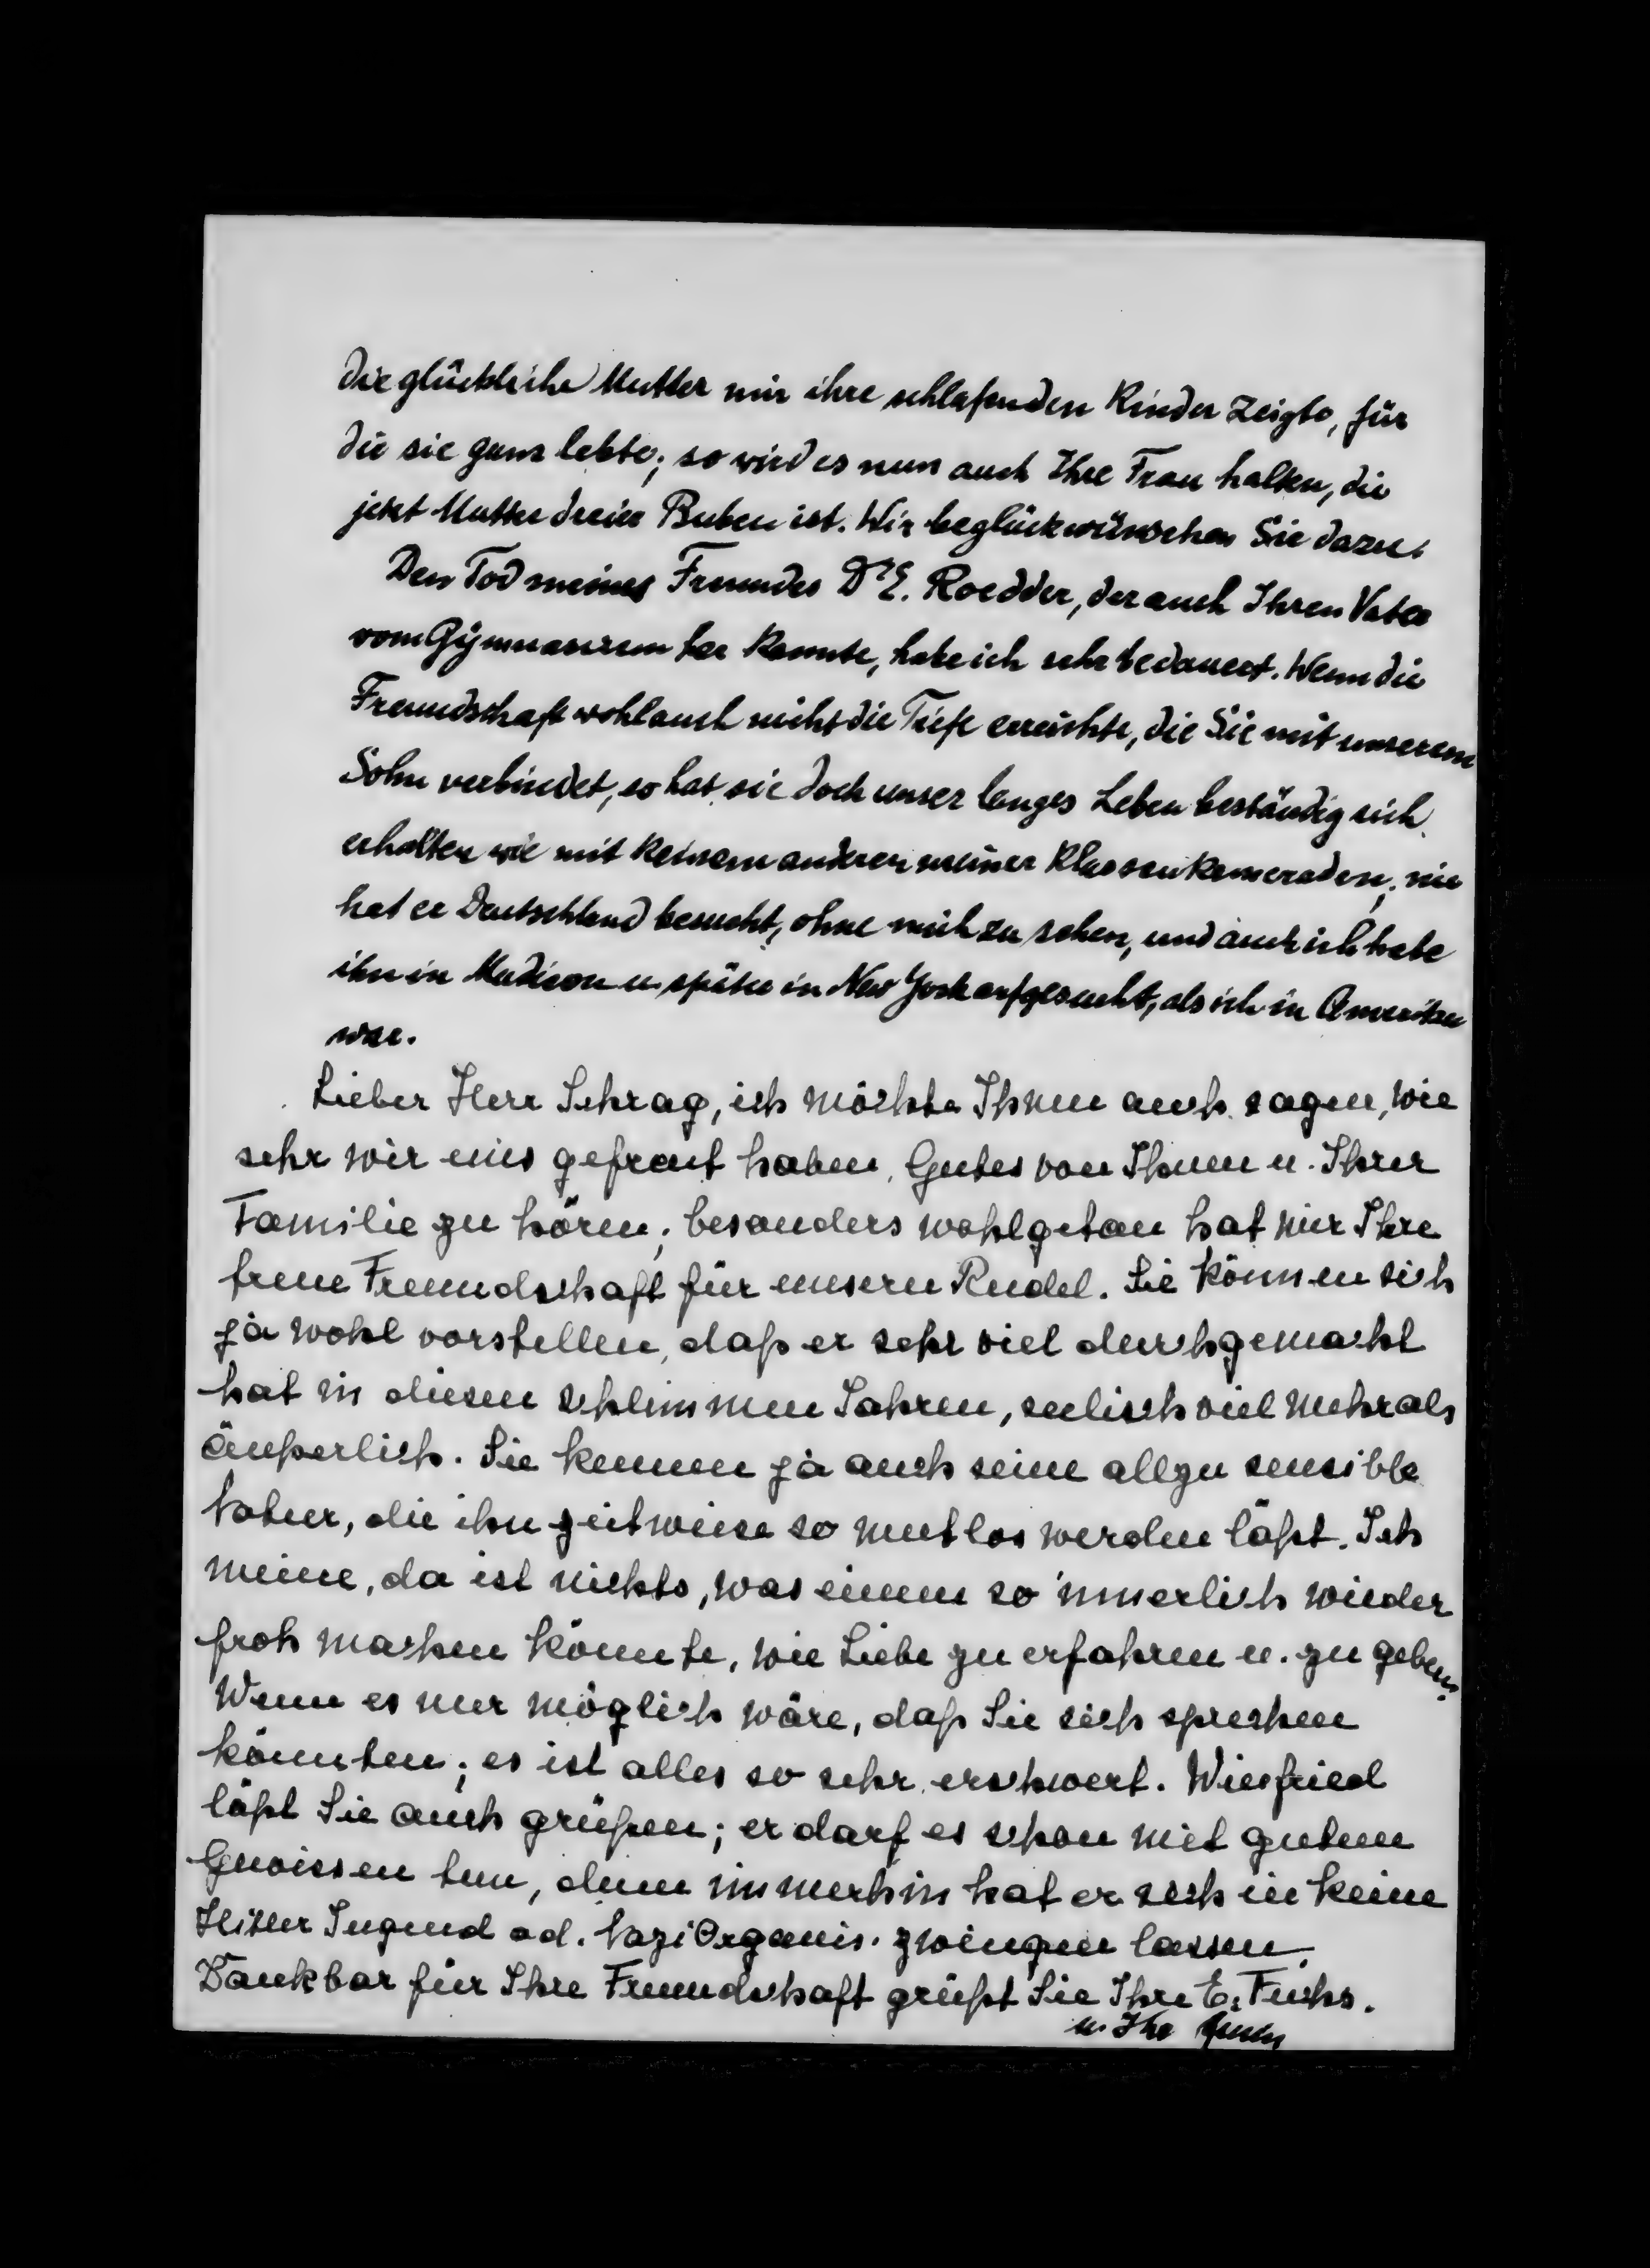 die glückliche Mutter mir ihre schlafenden Kinder zeigte, für
die sie ganz lebte; so wird es nun auch Ihre Frau halten, die
jetzt Mutter dreier Buben ist. Wir beglückwünschen Sie dazu.
Den Tod meines Freundes Dr E. Roedder, der auch Ihren Vater
vom Gymnasium her kannte, habe ich sehr bedauert. Wenn die
Freundschaft wohl auch nicht die Tiefe erreichte, die Sie mit unserem
Sohn verbindet, so hat sie doch unser langes Leben beständig sich
erhalten wie mit keinem anderen meiner Klassenkameraden; nie
hat er Deutschland besucht, ohne mich zu sehen, und auch ich habe
ihn in Madison u. später in New York aufgesucht, als ich in Amerika
war.
Lieber Herr Schrag, ich möchte Ihnen auch sagen, wie
sehr wir uns gefreut haben, Gutes von Ihnen u. Ihrer
Familie zu hören; besonders wohlgetan hat mir Ihre
treue Freundschaft für unsern Rudel. Sie können sich
ja wohl vorstellen, daß er sehr viel durchgemacht
hat in diesen schlimmen Jahren, seelisch viel mehr als
äußerlich. Sie kennen ja auch seine allzu sensible
Natur, die ihn zeitweise so mutlos werden läßt. Ich
meine, da ist nichts, was einem so innerlich wieder
froh machen könnte, wie Liebe zu erfahren u. zu geben.
Wenn es nur möglich wäre, daß Sie sich sprechen
könnten; es ist alles so sehr erschwert. Winfried
läßt Sie auch grüßen; er darf es schon mit gutem
Gewissen tun, denn immerhin hat er sich in keine
Hitler Jugend od. Nazi Organis. zwingen lassen.
Dankbar für Ihre Freundschaft grüßt Sie Ihre E. Fuchs.
u. Ihr